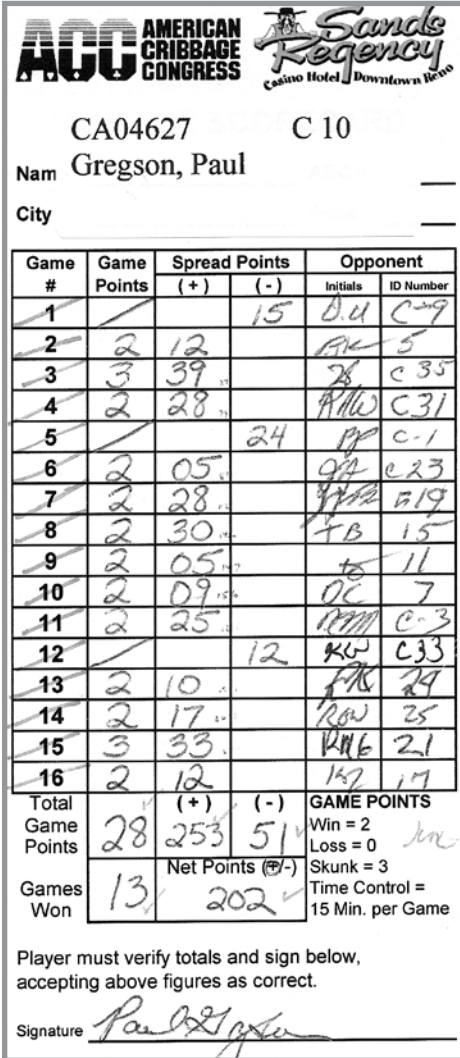 ACC AMERICAN CRIBBAGE CONGRESS
Sands Regency
Casino Hotel Downtown Reno
CA04627 C 10
Nam Gregson, Paul
City
Game # Game Points Spread Points (+) (-) Opponent Initials ID Number
1 15 D.U C-9
2 2 12 5
3 3 39 C 35
4 2 28 RHW C31
5 24 PP C-1
6 2 05 C23
7 2 28 19
8 2 30 TB 15
9 2 05 11
10 2 09 OC 7
11 2 25 C-3
12 12 KW C33
13 2 10
14 2 17 ROW 25
15 3 33 RMG 21
16 2 12 17
Total Game Points 28 (+) 253 (-) 51
Games Won 13 Net Points (+/-) 202
GAME POINTS
Win = 2
Loss = 0
Skunk = 3
Time Control =
15 Min. per Game
Player must verify totals and sign below,
accepting above figures as correct.
Signature